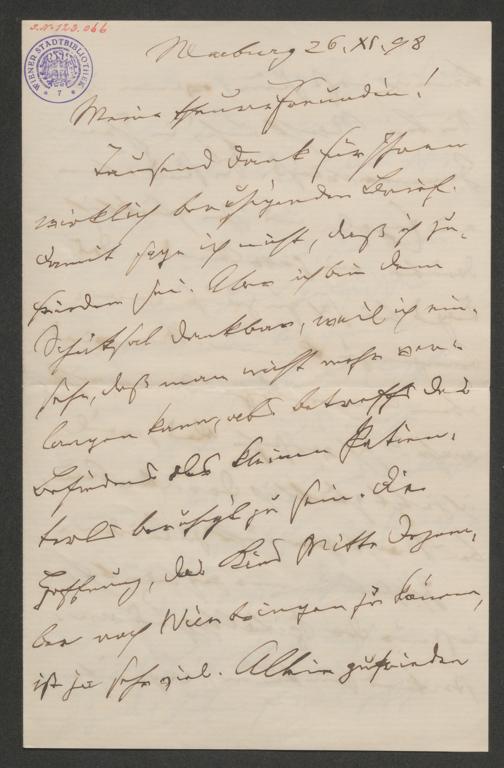 I.N. 123.066
WIENER STADTBIBLIOTHEK
* 7 *
Marburg 26. XI. 98
Meine theure Freundin!
Tausend Dank für Ihren
wirklich beruhigenden Brief.
Damit sage ich nicht, daß ich zu-
frieden sei. Aber ich bin dem
Schicksal dankbar, weil ich ein-
sehe, daß man nicht mehr ver-
langen kann, als betreffs des
Befindens des kleinen Patien-
terls beruhigt zu sein. Die
Hoffnung, das Kind Mitte Dezem-
ber nach Wien bringen zu können,
ist ja sehr viel. Allein zufrieden